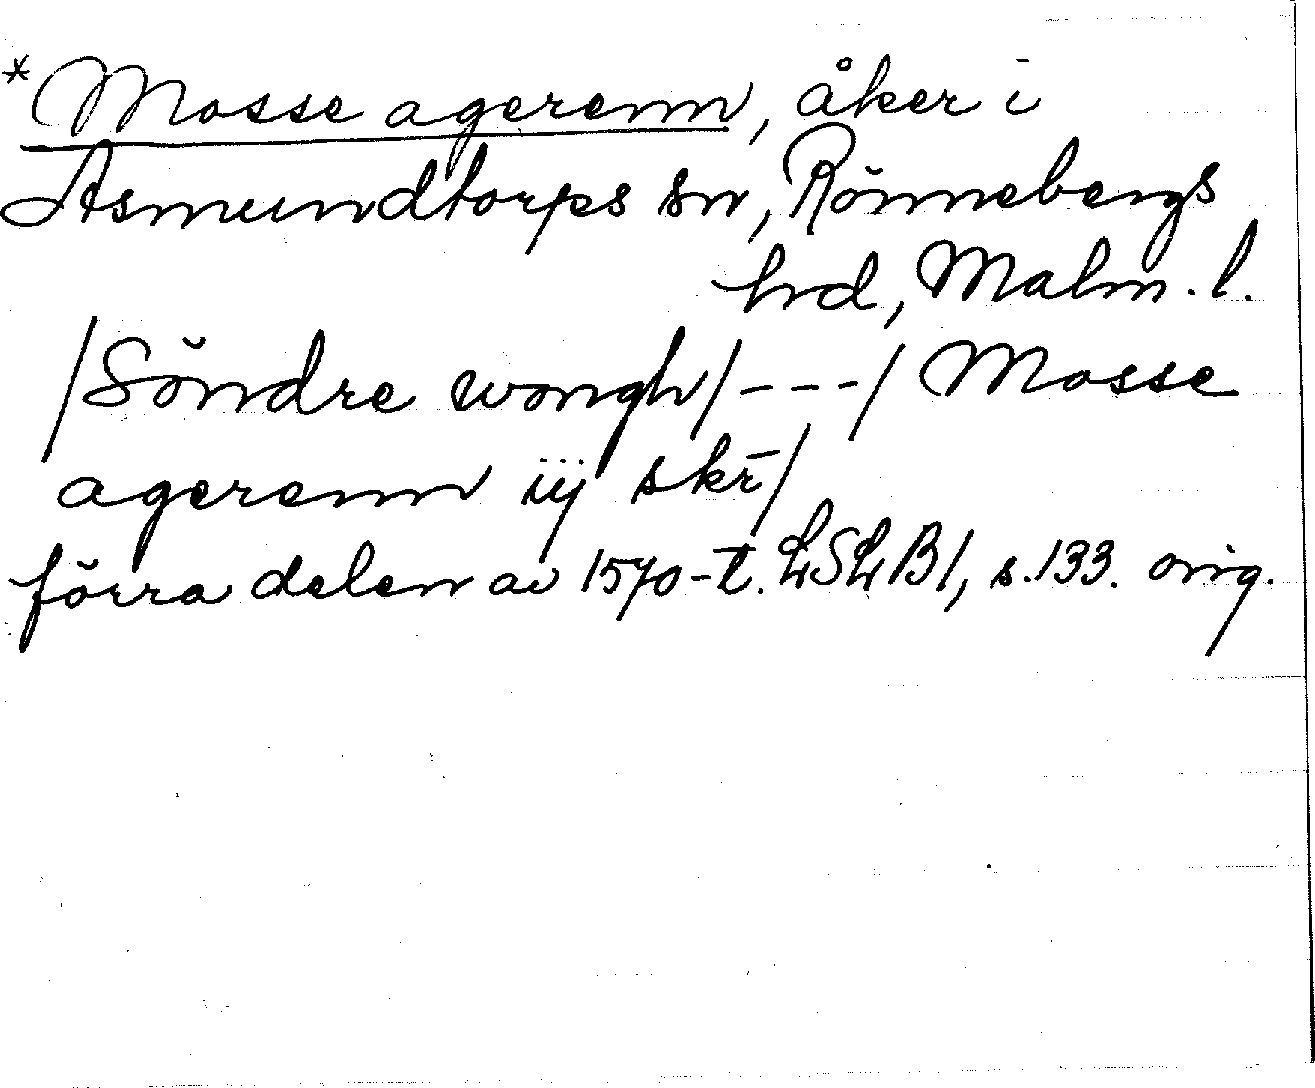 *Mosse agerenn, åker i
Asmundtorps sn, Rönnebergs
hd, Malm. l.
/Söndre wongh/---/ Mosse
agerenn iij skr̄/
förra delen av 1570-t. LSLB1, s.133. orig.